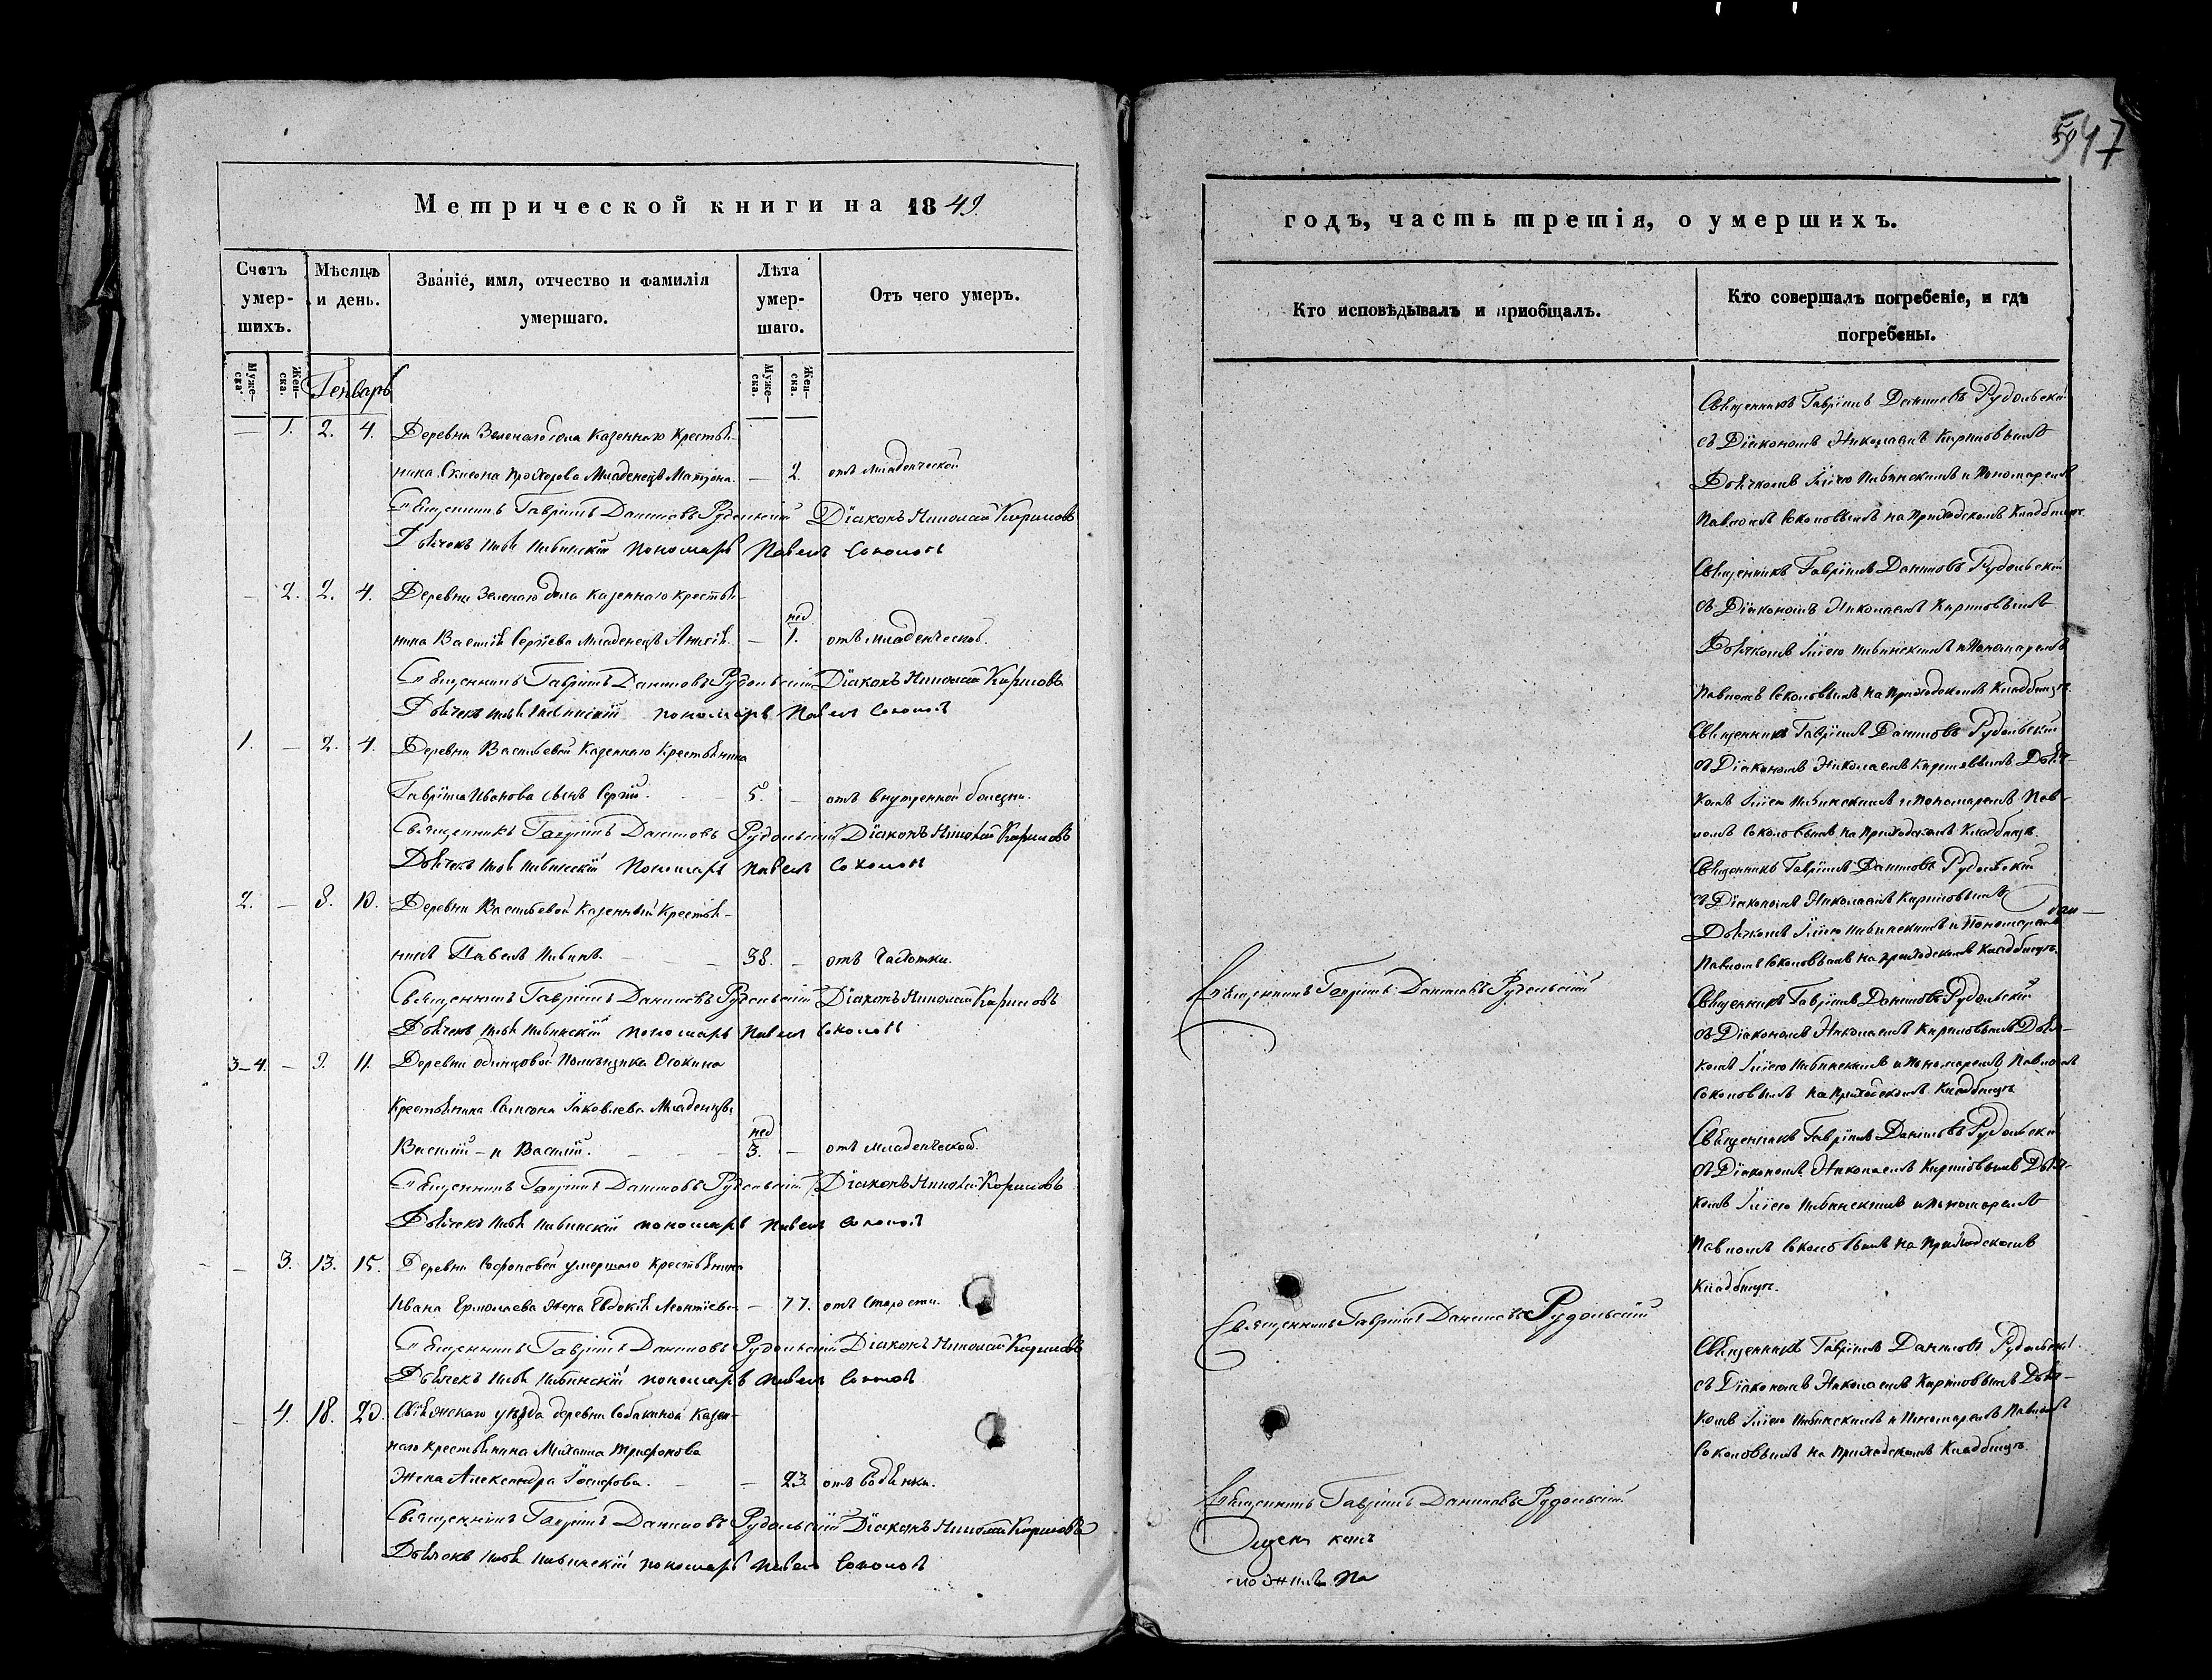 Метрической книги на 1849.
Счетъ умер- шихъ.
Мѣсяцъ и день.
Званіе, имя, отчество и фамилія умершаго.
Лѣта умер- шаго.
Отъ чего умеръ.
Муже- ска.
Жен- ска.
Генварь
Муже- ска.
Жен- ска.
— 1. 2. 4. Деревни Зеленаго дола Казеннаго Крестья-
нина Симеона Прохорова Младенецъ Матрона. — 2. отъ младенческой
Священникъ Гавріилъ Даниловъ Рудольскій Діаконъ Николай Кириловъ
Дьячекъ Илья Ильинскій Пономарь Павелъ Соколовъ
— 2. 2. 4. Деревни Зеленаго дола Казеннаго Крестья-
нед
нина Василія Сергѣева Младенецъ Анисія. — 1. отъ младенческой.
Священникъ Гавріилъ Даниловъ Рудольскій Діаконъ Николай Кириловъ
Дьячекъ Илья Ильинскій пономарь Павелъ Соколовъ
1. — 2. 4. Деревни Васильевой Казеннаго Крестьянина
Гавріила Иванова сынъ Сергій. 5. — отъ внутренной болезни.
Священникъ Гавріилъ Даниловъ Рудольскій Діаконъ Николай Кириловъ
Дьячекъ Илья Ильинскій Пономарь Павелъ Соколовъ
2. — 8. 10. Деревни Васильевой Казенный Крестья-
нинъ Павелъ Ильинъ. 38. — отъ Чахотки.
Священникъ Гавріилъ Даниловъ Рудольскій Діаконъ Николай Кириловъ
Дьячекъ Илья Ильинскій пономарь Павелъ Соколовъ
3-4. — 9. 11. Деревни Одинцовой Помѣщика Осокина
Крестьянина Самсона Іаковлева Младенцы
нед
Василій - и Василій. 3. — отъ младенческой.
Священникъ Гавріилъ Даниловъ Рудольскій Діаконъ Николай Кириловъ
Дьячекъ Илья Ильинскій пономарь Павелъ Соколовъ
— 3. 13. 15. Деревни Софоновой умершаго Крестьянина
Ивана Ермолаева жена Евдокія Леонтіева — 77. отъ старости.
Священникъ Гавріилъ Даниловъ Рудольскій Діаконъ Николай Кириловъ
Дьячекъ Илья Ильинскій пономарь Павелъ Соколовъ
— 4. 18. 20. Свіяжскаго уѣзда деревни Собакиной Казен-
наго Крестьянина Михаила Трифонова
Жена Александра Іосифова. — 23. отъ водянки.
Священникъ Гавріилъ Даниловъ Рудольскій Діаконъ Николай Кириловъ
Дьячекъ Илья Ильинскій пономарь Павелъ Соколовъ
547
годъ, часть третія, о умершихъ.
Кто исповѣдывалъ и пріобщалъ.
Кто совершалъ погребеніе, и гдѣ погребены.
Священникъ Гавріилъ Даниловъ Рудольскій
съ Діакономъ Николаемъ Кириловымъ
Дьячкомъ Ильею Ильинскимъ и Пономаремъ
Павломъ Соколовымъ на Приходскомъ Кладбищѣ.
Священникъ Гавріилъ Даниловъ Рудольскій
съ Діакономъ Николаемъ Кириловымъ
Дьячкомъ Ильею Ильинскимъ и Пономаремъ
Павломъ Соколовымъ на Приходскомъ Кладбищѣ.
Священникъ Гавріилъ Даниловъ Рудольскій
съ Діакономъ Николаемъ Кириловымъ Дьяч-
комъ Ильею Ильинскимъ и Пономаремъ Пав-
ломъ Соколовымъ на Приходскомъ Кладбищѣ.
Священникъ Гавріилъ Даниловъ Рудольскій
съ Діакономъ Николаемъ Кириловымъ
Дьячкомъ Ильею Ильинскимъ и Пономаремъ
Павломъ Соколовымъ на приходскомъ Кладбищѣ.
Священникъ Гавріилъ Даниловъ Рудольскій
Священникъ Гавріилъ Даниловъ Рудольскій
съ Діакономъ Николаемъ Кириловымъ Дьяч-
комъ Ильею Ильинскимъ и Пономаремъ Павломъ
Соколовымъ на Приходскомъ Кладбищѣ
Священникъ Гавріилъ Даниловъ Рудольскій
съ Діакономъ Николаемъ Кириловымъ Дьяч-
комъ Ильею Ильинскимъ и Пономаремъ
Павломъ Соколовымъ на Приходскомъ
Кладбищѣ.
Священникъ Гавріилъ Даниловъ Рудольскій
Священникъ Гавріилъ Даниловъ Рудольскій.
съ Діакономъ Николаемъ Кириловымъ Дьяч-
комъ Ильею Ильинскимъ и Пономаремъ Павломъ
Соколовымъ на Приходскомъ Кладбищѣ.
Священникъ Гавріилъ Даниловъ Рудольскій